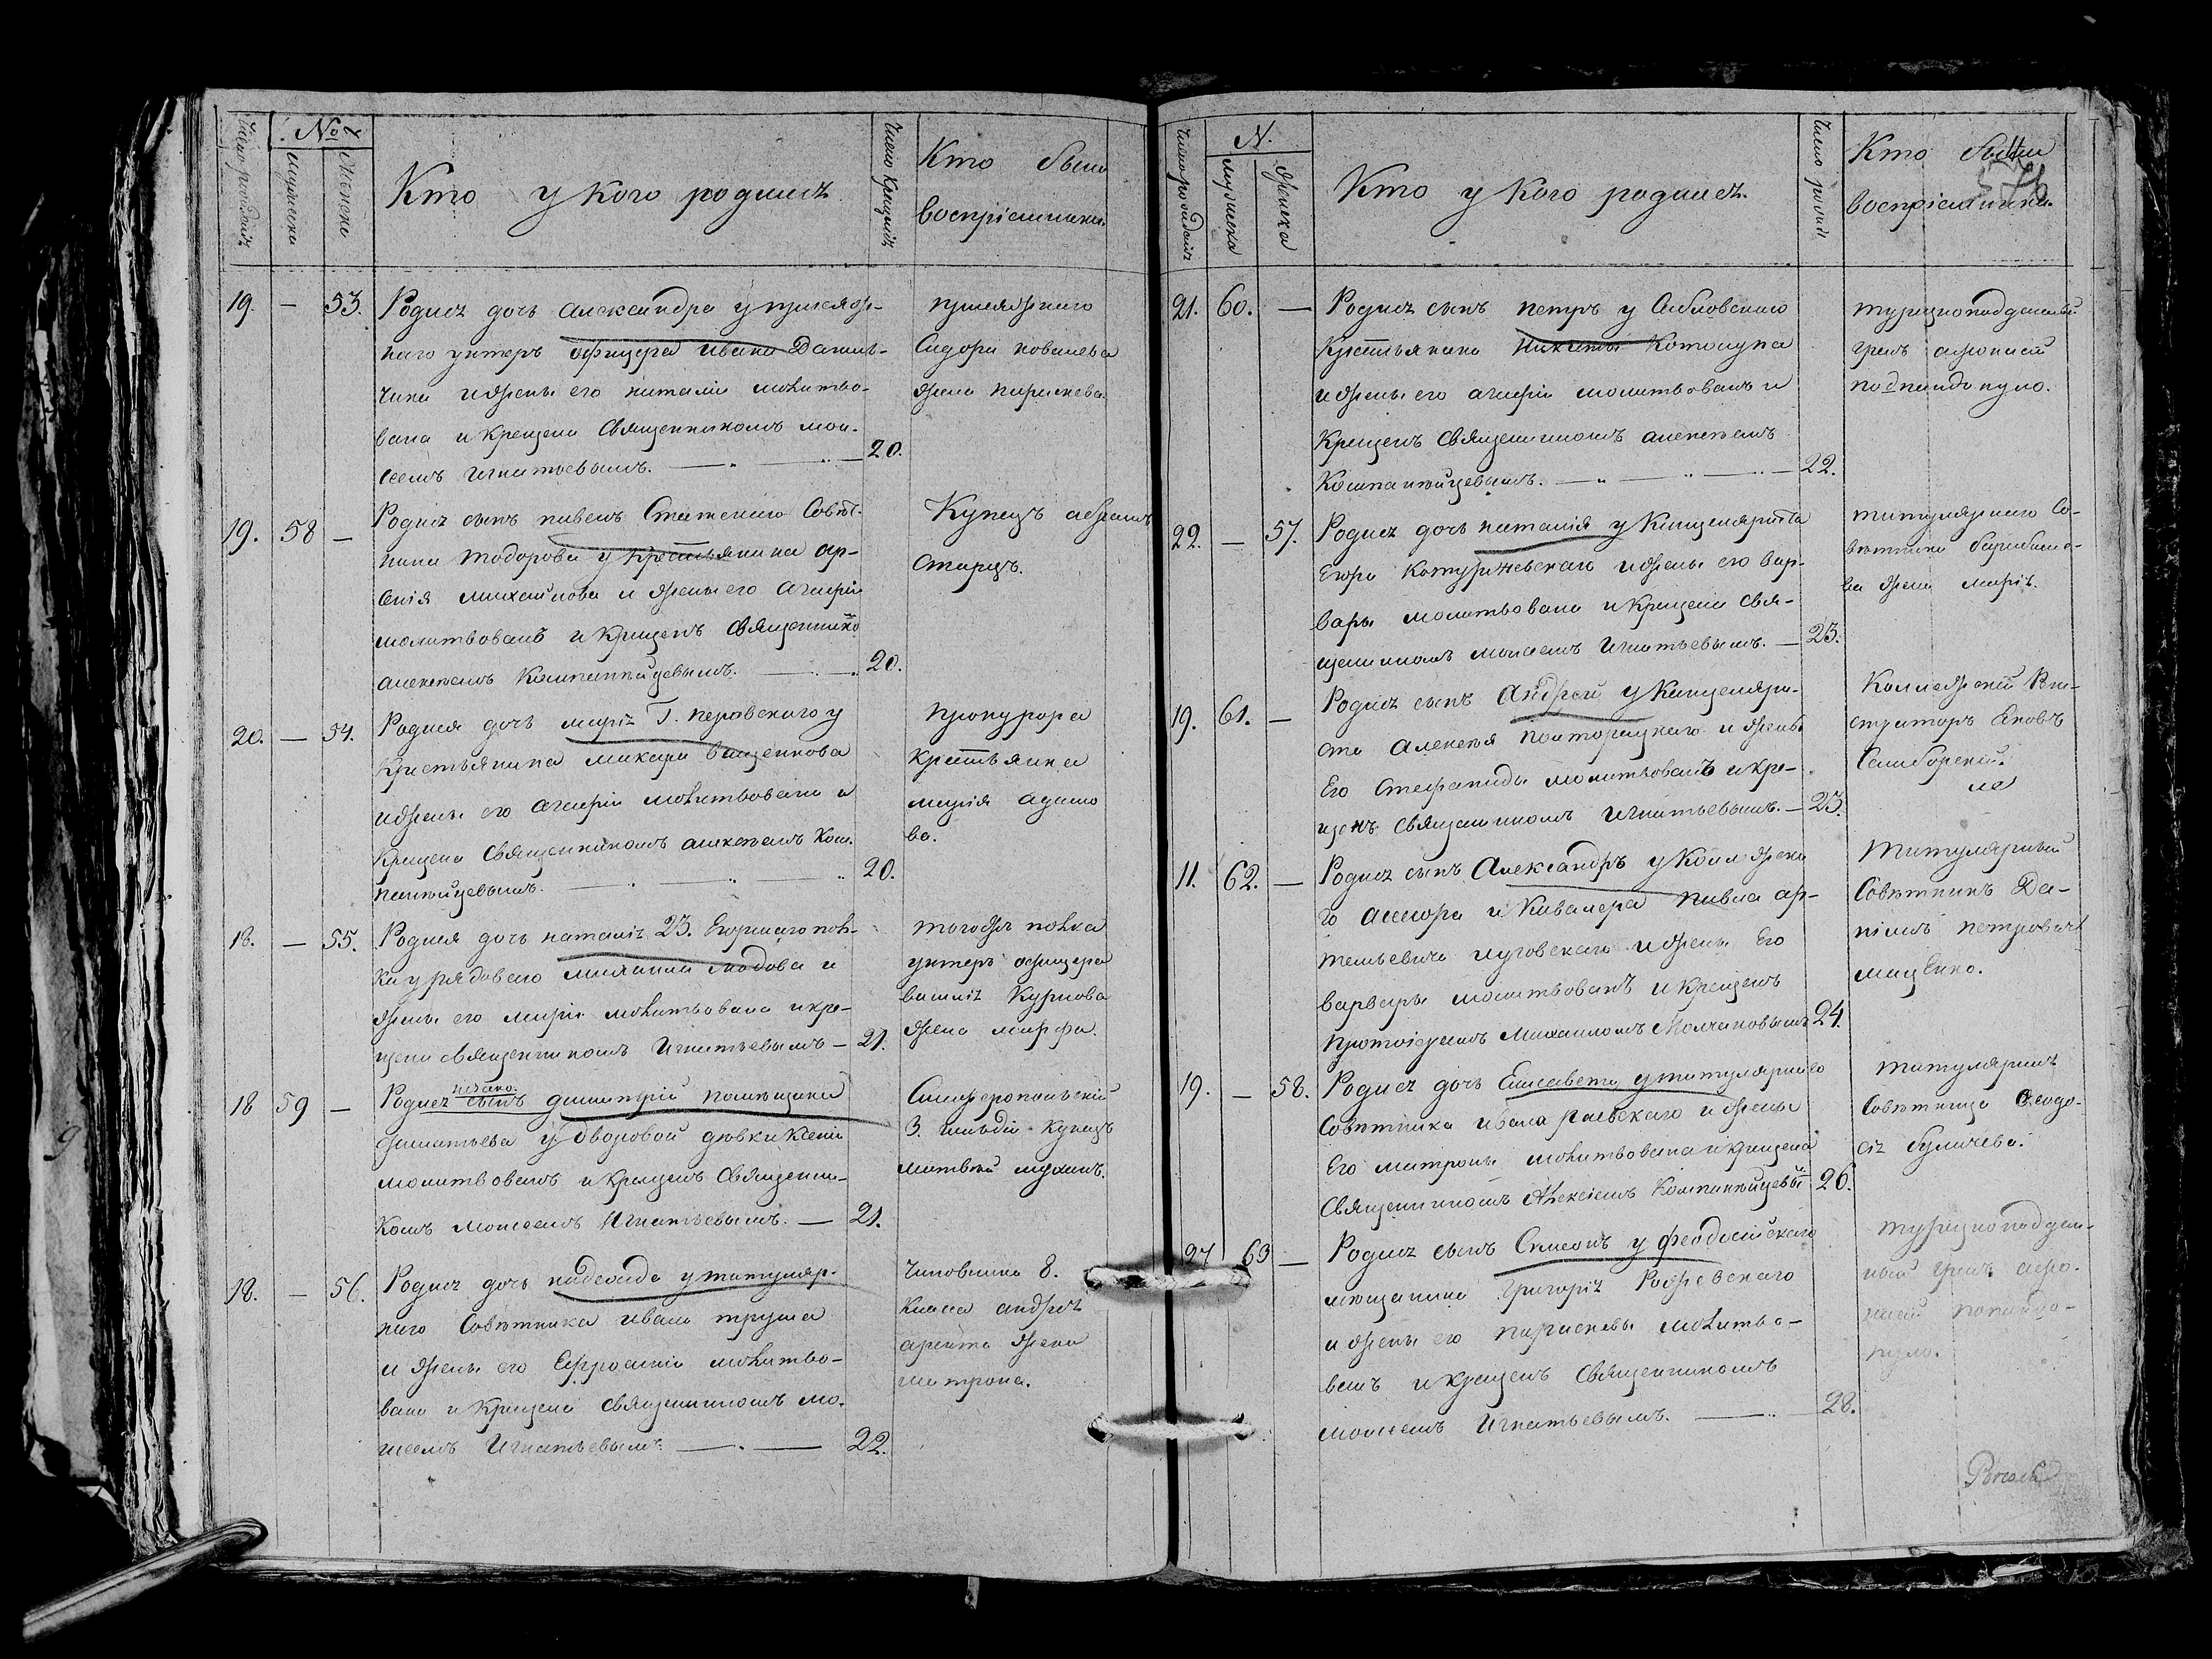 Число рожденія
№
мужеска
женска
Кто у кого родился
Число крещенія
Кто были
воспріемники.
19. — 53. Родись дочь Александра у присяж-
наго унтеръ офицера ивана Данил-
чика и жены его наталіи молитво-
вана и крещена Священникомъ мои-
сеемъ игнатьевымъ. — 20.
присяжнаго
Сидора ковалева
жена параскева.
19. 58 — Родись сынъ павелъ Статскаго Совѣт-
ника тодорова у крестьянина ар-
сенія михайлова и жены его агафіи
молитвованъ и крещенъ Священнико
алексеемъ Компанейцевымъ. — 20.
Купецъ абрамъ
Старцъ.
20. — 54. Родися дочь марія Г. перовского у
Крестьянина макара ващенкова
и жены его агафіи молитвована и
Крещена Священникомъ алексеемъ Ком-
панейцевымъ. — 20.
прокурора
крестьянка
марія адамо
ва.
18. — 55. Родися дочь наталія 23. Егорского пол-
ка у рядового и
жены его маріи молитвована и кре-
щена священникомъ Игнатьевымъ — 21.
тогожъ полка
унтеръ офицера
василія Курнова
жена марфа.
18 59 — Родись незако. сынъ димитрій помѣщика
филатьева у дворовой дѣвки Ксеніи
молитвованъ и крещенъ Священни-
комъ моисеемъ Игнатьевымъ. — 21.
Симферопольскій
3. гильдіи купецъ
матвей мухинъ.
18. — 56. Родись дочь надежда у титуляр-
наго Совѣтника ивана труша
и жены его Ефросиніи молитво-
вана и крещена священникомъ мо-
исеемъ Игнатьевымъ. — 22.
Чиновника 8.
класа андрея
арента жена
матрона.
Число рожденія
N.
мужеска
женска
Кто у кого родился.
Число рожд
Кто были
воспріемники.
21. 60. — Родись сынъ петръ у
Крестьянина никиты Котолупа
и жены его агафіи молитвованъ и
Крещенъ священникомъ алексеемъ
Компанейцевымъ. — 22.
турецкоподданный
грекъ афонасій
попандопуло.
22. — 57. Родись дочь наталія у Канцеляриста
Егора и жены его вар-
вары молитвована и крещена свя-
щенникомъ моисеемъ Игнатьевымъ. — 23.
титулярнаго Со-
вѣтника
ва жена марія.
19. 61. — Родись сынъ Андрей у Канцелярис-
ста Алексея полторацкаго и жены
Его Стефаниды молитвованъ и кре-
щенъ священникомъ Игнатьевымъ. — 23.
Коллежскій Реги-
страторъ Яковъ
Самборскій.
11. 62. — Родись сынъ Александръ у Коллежска
го асесора и Кавалера павла ар-
темьевича луговскаго и жены Его
варвары молитвованъ и крещенъ
протоіереемъ Михаиломъ Молчановымъ 24.
Титулярный
Совѣтникъ Да-
ніилъ петровичъ
маценко.
19. — 58. Родись дочь Елисавета у титулярнаго
Совѣтника ивана раевскаго и жены
Его матроны молитвована и крещена
Священникомъ Алексіемъ Компанейцевы 26.
титулярная
Совѣтница Феодо-
сія буличева.
27 63 — Родись сынъ Симеонъ у феодосійскаго
мещанина григорія Рожевскаго
и жены его параскевы молитво-
ванъ и крещенъ Священникомъ
моисеемъ Игнатьевымъ. — 28.
турецкоподдан-
ный грекъ афо-
насій попандо-
пуло.